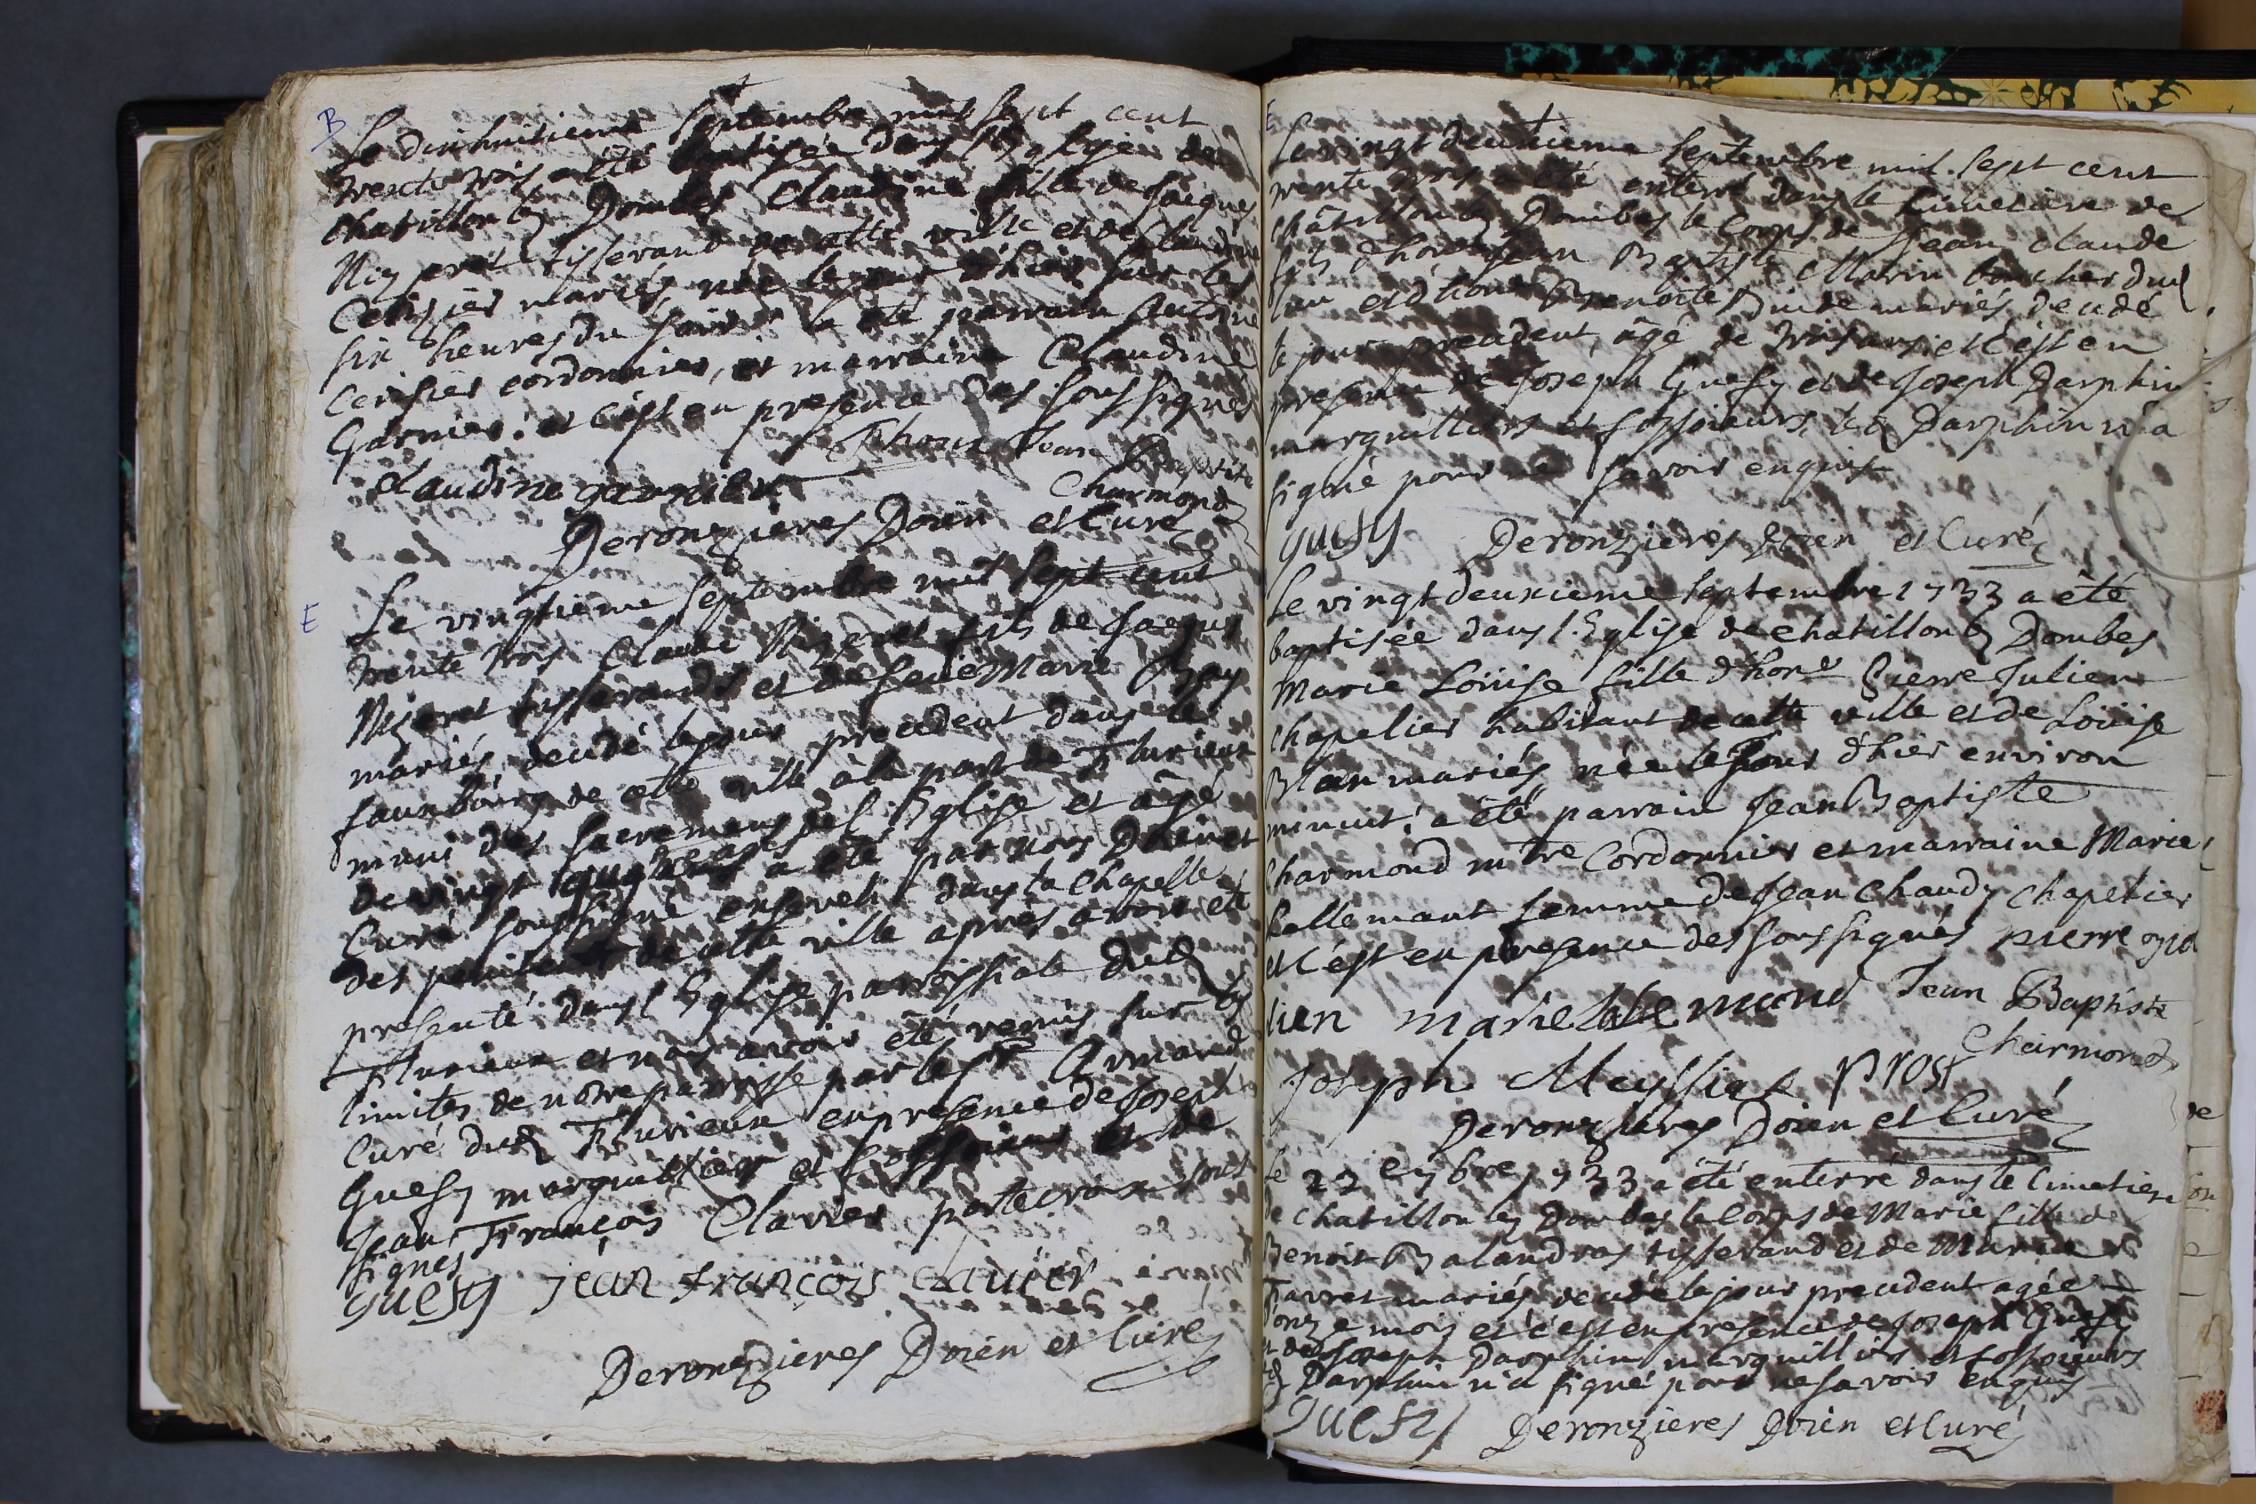 B
Le dixhuitieme Septembre mil sept cent
trente trois a été baptisée dans l'Eglise de
Chatillon les Dombes Claudine fille de Jaques
Nizeret tisserand de cette ville et de Claudine
Cerisier mariés, née le jour d'hier sur les
six heures du soir a été parrain Antoine
Cerisier cordonnier, et marraine Claudine
Garnier: et c'est en presence des soussignés
Claudine garnier Thomas Jean Baptiste
Charmond
Deronzieres Doien et Curé
E
Le vingtieme Septembre mil sept cent
trente trois Claude Nizeret fils de Jaques
Nizeret tisserand et de feüe Marie Bay
mariés, decedé le jour precedent dans le
fauxbourg de cette ville à la part de Flurieux
muni des sacremens de l'Eglise et âgé
de vingt ans a été par nous Doien et
Curé soussigné enseveli dans la chapelle
des penitents de cette ville apres avoir été
presenté dans l'Eglise paroissiale dud
Flurieux et nous avoir été remis sur les
limites de notre paroisse par le Sr Armand
Curé dud Flurieux en presence de Joseph
Guesy marguillier et fossoieur et de
Jean François Clavier portecroix sous
signés
guesy jean françois clauier
Deronzieres Doien et Curé
E
Le vingt deuxieme Septembre mil sept cent
trente trois a été enterré dans le Cimetiere de
Châtillon les Dombes le Corps de Jean Claude
fils d'honr Jean Baptiste Marin boucher dud
lieu et d'hone Benoite mariés decedé
le jour precedent, âgé de trois ans et c'est en
presence de Joseph Guesy et de Joseph Darphin
marguilliers et fossoieurs led Darphin n'a
signé pour ne savoir enquis
guesy Deronzieres Doien et Curé
Le vingt deuxieme Septembre 1733 a été
baptisée dans l'Eglise de chatillon les Dombes
Marie Loüise fille d'honr Pierre Julien
chapelier habitant de cette ville et de Loüise
Blan mariés, née le jour d'hier environ
minuit: a été parrain Jean Baptiste
Charmond mtre Cordonnier et marraine Marie
Lallemant femme de Jean Chaudy Chapelier
et c'est en presence des soussignés pierre ju
lien marie lallemand Jean Baptiste
Charmond
Joseph Meyssiat Prost
Deronzieres Doien et Curé
Le 23e 7bre 1733 a été enterré dans le Cimetiere
de Chatillon les Dombes le Corps de Marie fille de
Benoit Balandras tisserand et de Marie
Favret mariés decedé le jour precedent agée
d'onze mois et c'est en presence de Joseph Guesy
et de Joseph Darphin marguilliers et fossoieurs
led Darphin n'a signé pour ne savoir enquis
guesy Deronzieres Doien et Curé